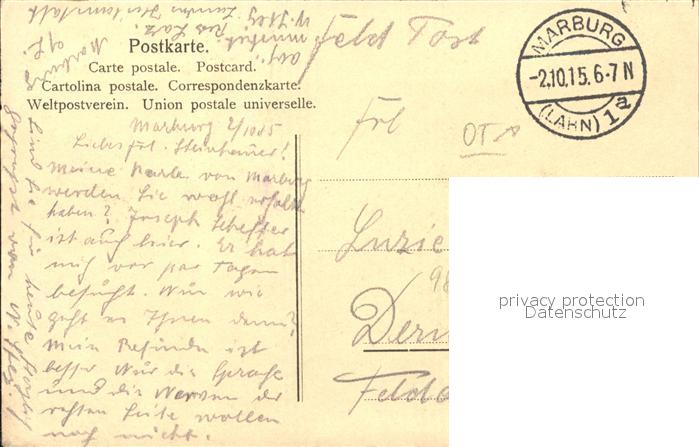 Feld Post
Postkarte.
Carte postale. Postcard.
Cartolina postale. Correspondenzkarte.
Weltpostverein. Union postale universelle.
MARBURG
-2.10.15.6-7N
(LAHN) 1a
Marburg 2/10 15
Liebes Frl. Steinhäuer!
Meine Karte von Marburg
werden Sie wohl erhalten
haben? Joseph Scheffer
ist auch hier. Er hat
mich vor par Tagen
besucht. Nun wie
geht es Ihnen denn?
Mein Befinden ist
besser Nur die Sprache
und die Nerven der
rechten Seite wollen
noch nicht.
Sind Sie für heute
gegrüßt von
Frl
Luzie
Dern
Felda
privacy protection
Datenschutz